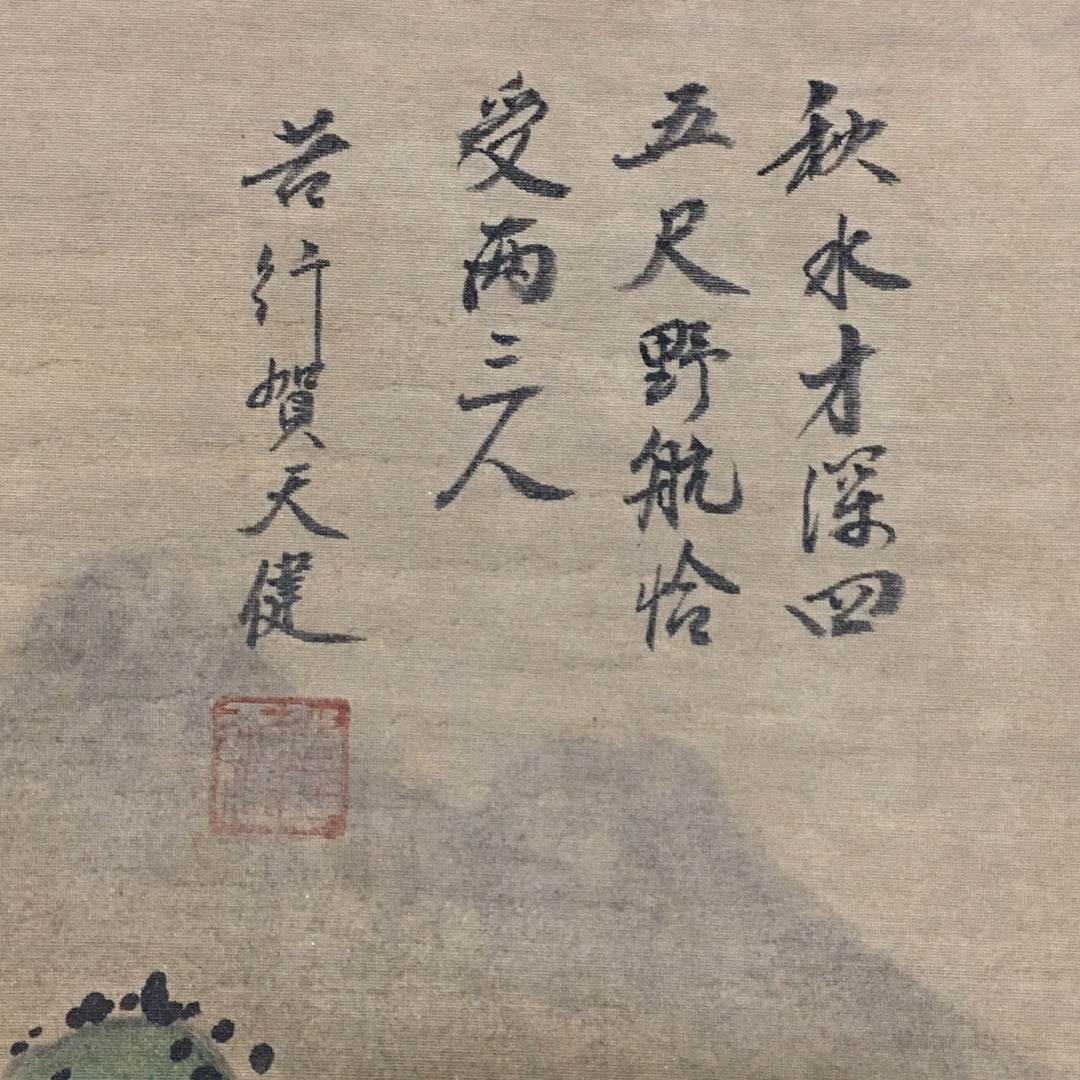 秋水才深四
五尺野航恰
受两三人
苦行賀天健